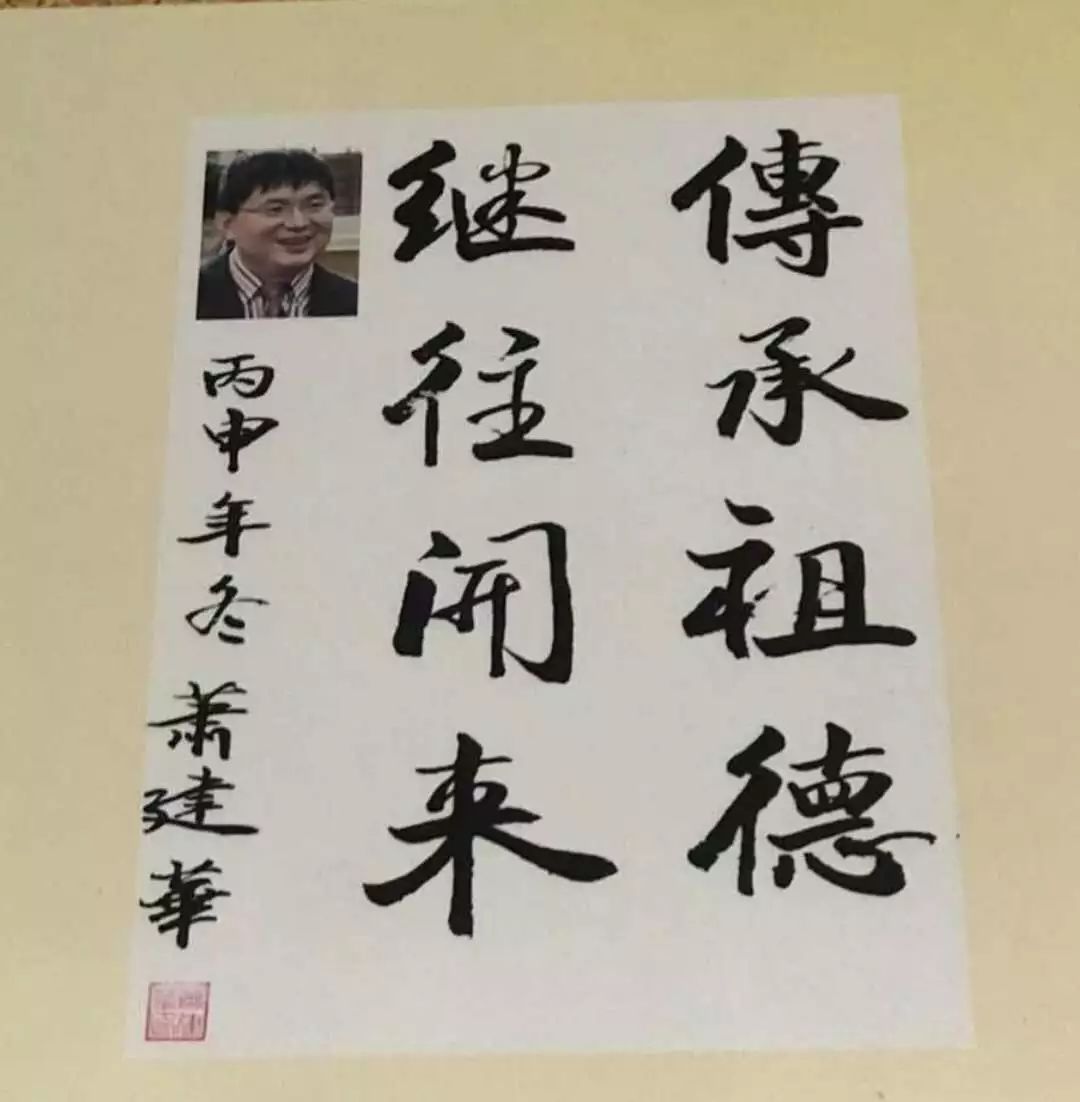 傳承祖德
继往开来
丙申年冬 萧建華